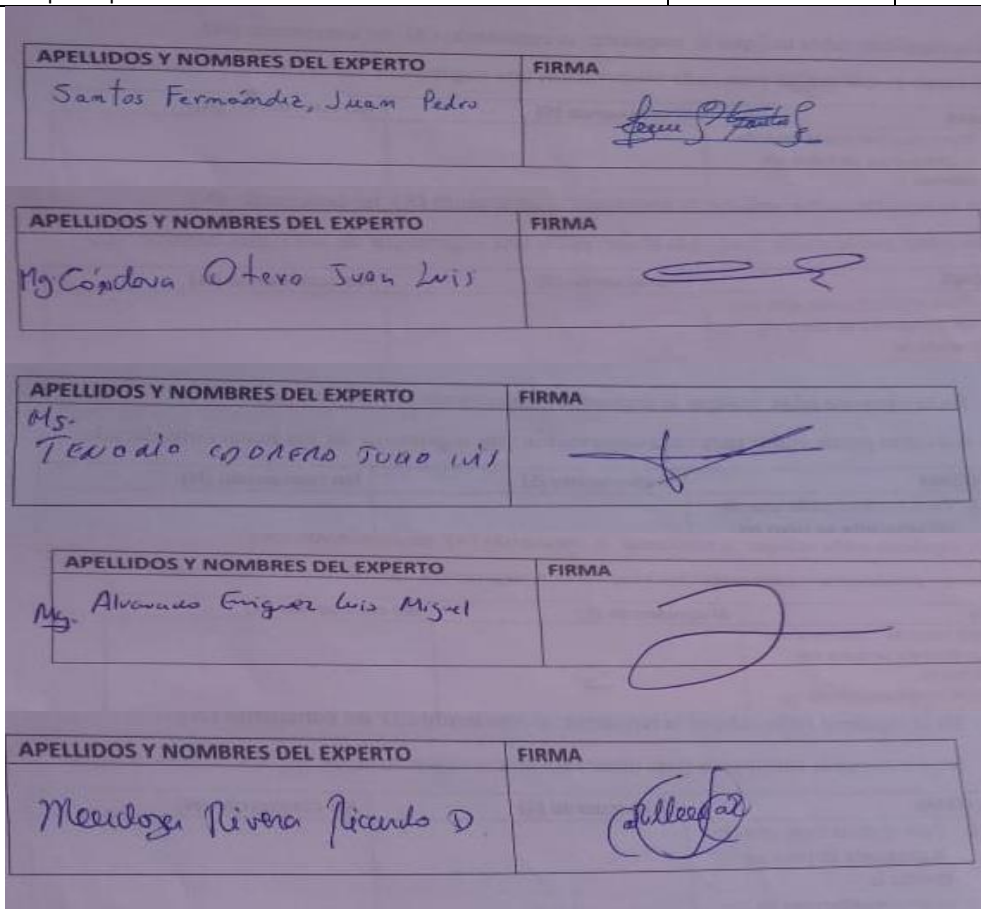 APELLIDOS Y NOMBRES DEL EXPERTO FIRMA
Santos Fernández, Juan Pedro
APELLIDOS Y NOMBRES DEL EXPERTO FIRMA
Mg Córdova Otero Juan Luis
APELLIDOS Y NOMBRES DEL EXPERTO FIRMA
Ms.
TENORIO CORDERO JULIO LUIS
APELLIDOS Y NOMBRES DEL EXPERTO FIRMA
Mg. Alvarado Enriquez Luis Miguel
APELLIDOS Y NOMBRES DEL EXPERTO FIRMA
Mendoza Rivera Ricardo D